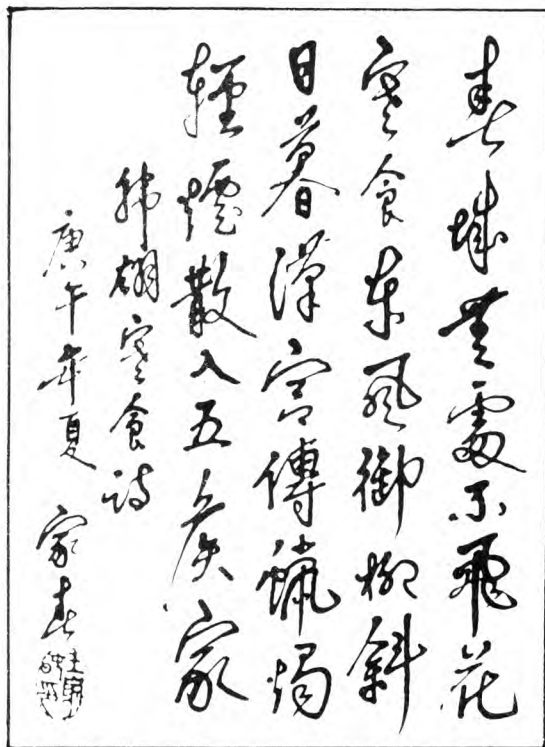 春城無處不飛花
寒食東風御柳斜
日暮漢宮傳蠟燭
輕煙散入五侯家
韓翃寒食詩
庚午年夏 家春